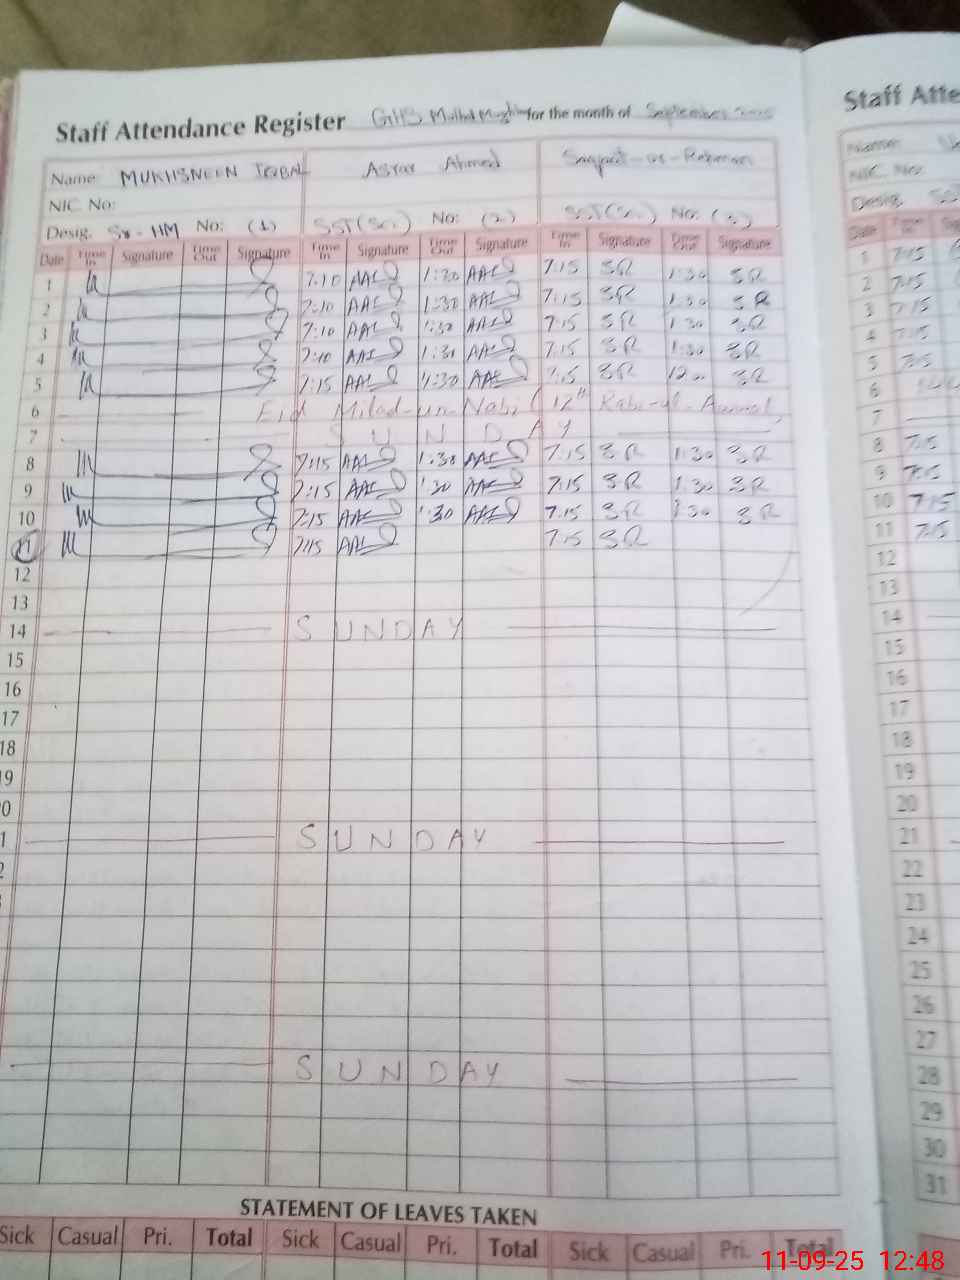 Staff Attendance Register GHS for the month of September 2025
Staff Atte
Name: MUKHSNEEN IQBAL Asrar Ahmed
NIC No:
NIC No:
Desig. Sr-HM No: (1) SST(Sc.) No: (2) SST(Sc.) No: (3)
Desig.
Date Time In Signature Time Out Signature Time In Signature Time Out Signature Time In Signature Time Out Signature
Date Time In
1 7:10 1:30 7:15 SR 1:30 SR
2 7:10 1:30 7:15 SR 1:30 SR
3 7:10 1:30 7:15 SR 1:30 SR
4 7:10 1:30 7:15 SR 1:30 SR
5 7:15 1:30 7:15 SR 12:00 SR
6 Eid Milad-un-Nabi (12th Rabi-ul-Awwal)
7 SUNDAY
8 7:15 1:30 7:15 SR 1:30 SR
9 7:15 1:30 7:15 SR 1:30 SR
10 7:15 1:30 7:15 SR 1:30 SR
11 7:15 7:15 SR
12
13
14 SUNDAY
15
16
17
18
19
20
21 SUNDAY
SUNDAY
1 7:15
2 7:15
3 7:15
4 7:15
5 7:15
6
7
8 7:15
9 7:15
10 7:15
11 7:15
12
13
14
15
16
17
18
19
20
21
22
23
24
25
26
27
28
29
30
31
STATEMENT OF LEAVES TAKEN
Sick Casual Pri. Total Sick Casual Pri. Total Sick Casual Pri. Total
11-09-25 12:48